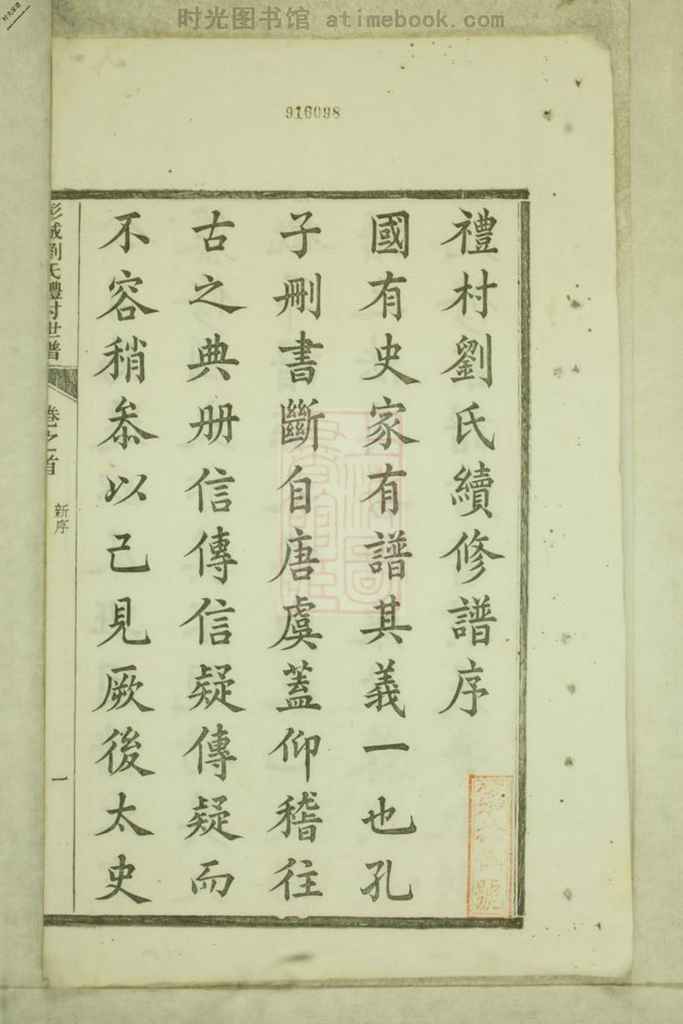 时光图书馆 atimebook.com
916098
禮村劉氏續修譜序
國有史家有譜其義一也孔
子刪書斷自唐虞蓋仰稽往
古之典册信傳信疑傳疑而
不容稍叅以己見厥後太史
彭城劉氏禮村世譜
卷之首
新序
一